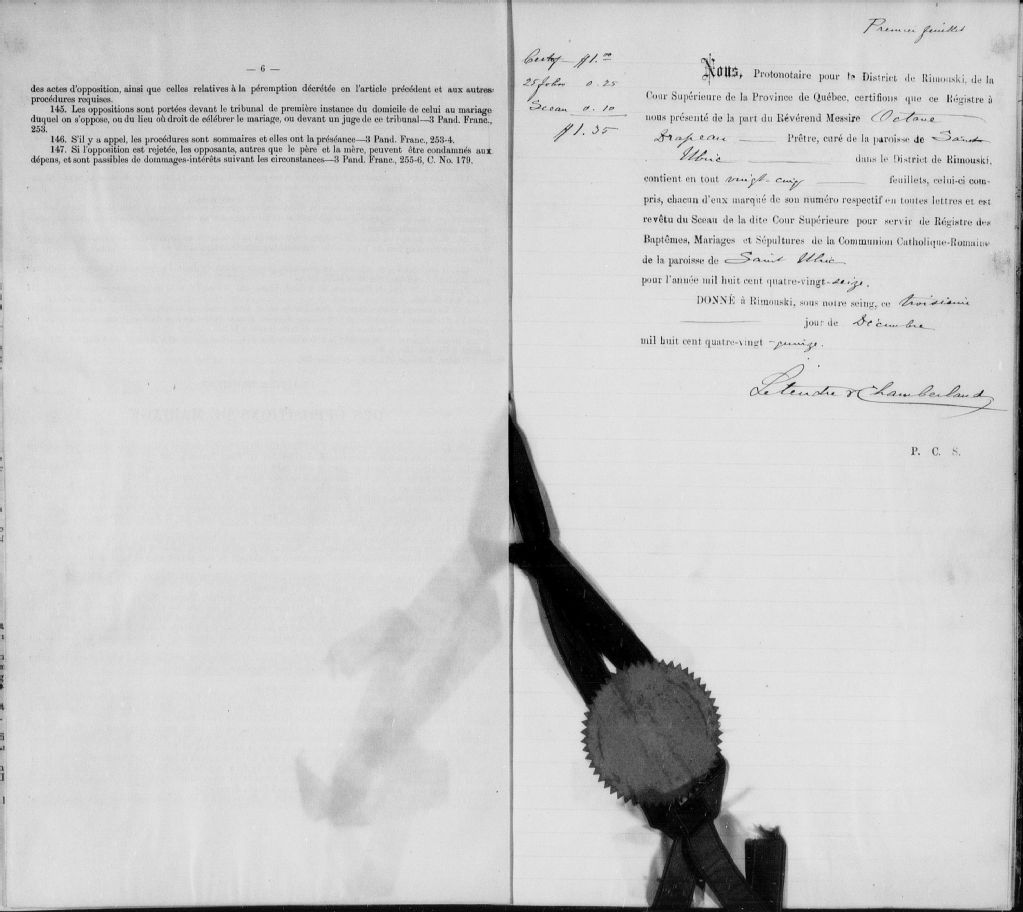 — 6 —
des actes d'opposition, ainsi que celles relatives à la péremption décrétée en l'article précédent et aux autres
procédures requises.
145. Les oppositions sont portées devant le tribunal de première instance du domicile de celui au mariage
duquel on s'oppose, ou du lieu où droit de célébrer le mariage, ou devant un juge de ce tribunal—3 Pand. Franc.,
253.
146. S'il y a appel, les procédures sont sommaires et elles ont la préséance—3 Pand. Franc., 253-4.
147. Si l'opposition est rejetée, les opposants, autres que le père et la mère, peuvent être condamnés aux
dépens, et sont passibles de dommages-intérêts suivant les circonstances—3 Pand. Franc., 255-6, C. No. 179.
Premier feuillet
$1.00
25 folios 0.25
Sceau 0.10
$1.35
Nous, Protonotaire pour le District de Rimouski, de la
Cour Supérieure de la Province de Québec, certifions que ce Régistre à
nous présenté de la part du Révérend Messire Octave
Drapeau Prêtre, curé de la paroisse de Saint
Ulric dans le District de Rimouski,
contient en tout vingt-cinq feuillets, celui-ci com-
pris, chacun d'eux marqué de son numéro respectif en toutes lettres et est
revêtu du Sceau de la dite Cour Supérieure pour servir de Régistre des
Baptêmes, Mariages et Sépultures de la Communion Catholique-Romaine
de la paroisse de Saint Ulric
pour l'année mil huit cent quatre-vingt-seize.
DONNÉ à Rimouski, sous notre seing, ce troisième
jour de Décembre
mil huit cent quatre-vingt-quinze.
Letendre & Chamberland
P. C. S.